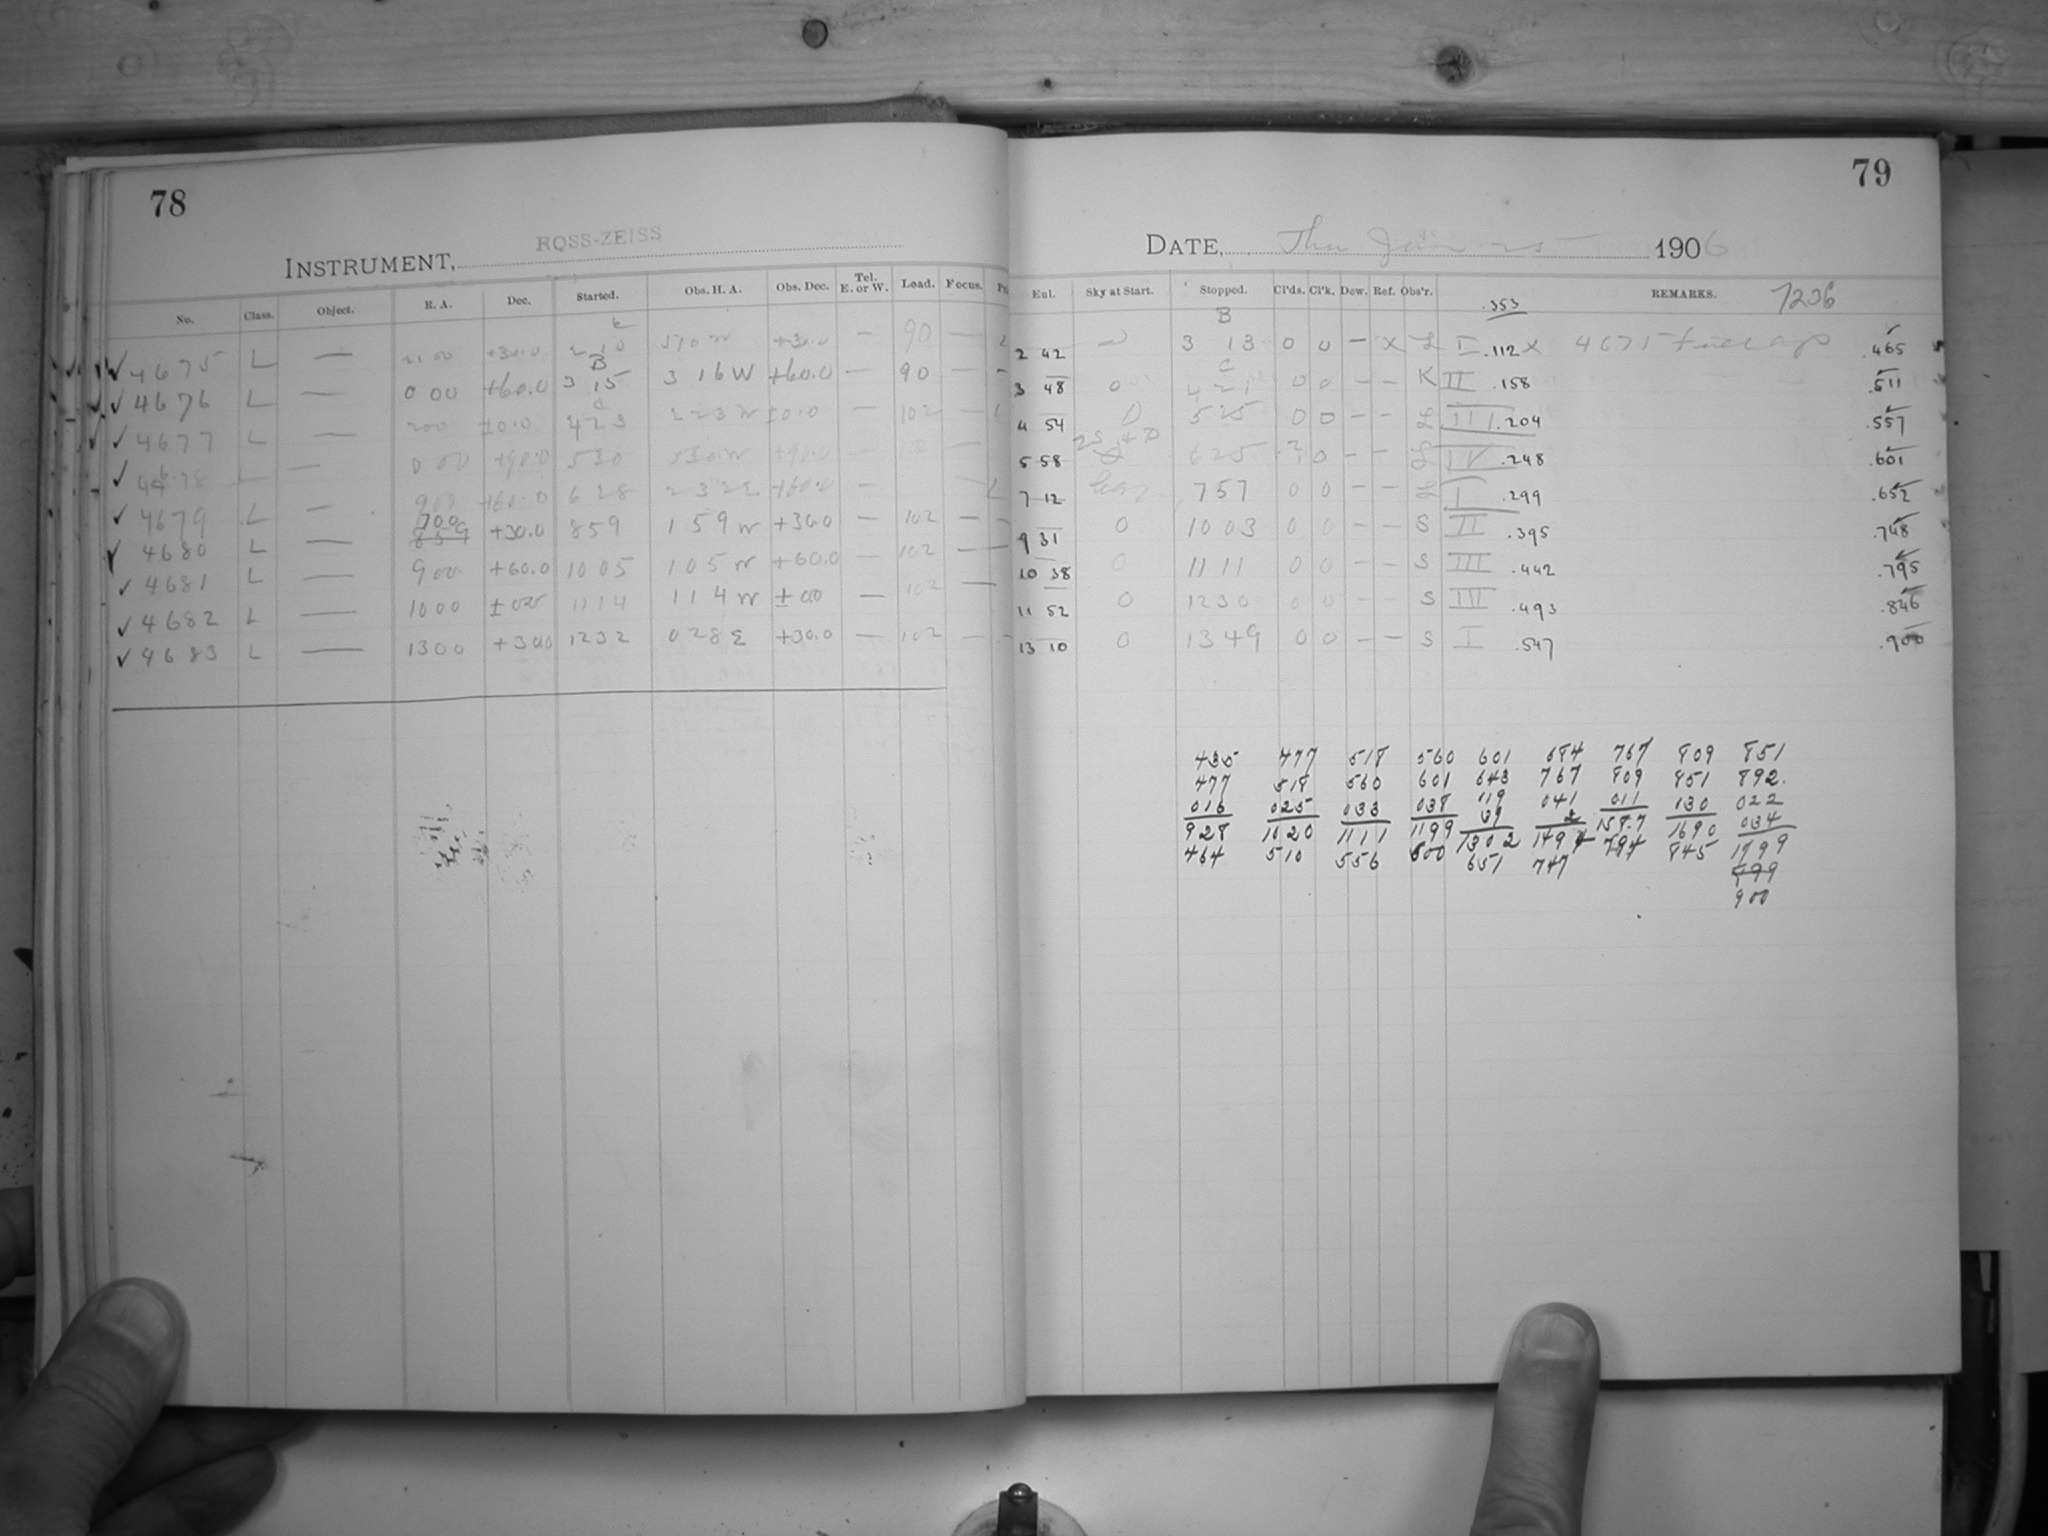 78
ROSS-ZEISS
INSTRUMENT,
No. Class. Object. R. A. Dec. Started. Obs. H. A. Obs. Dec. Tel. E. or W. Load. Focus.
4675 L — 21 00 +30.0 2 10 5 70 W +30.0 — 90 —
4676 L — 0 00 +60.0 B 3 15 3 16 W +60.0 — 90 — –
4677 L — 2 00 ±0.0 C 4 23 2 23 W ±0.0 — 102 —
4678 — 0 00 +90.0 5 30 +90.0 —
4679 L — 9 00 +60.0 6 28 2 32 E +60.0 —
4680 L — 7 00 8 59 +30.0 8 59 1 59 W +30.0 — 102 —
4681 L — 9 00 +60.0 10 05 1 05 W +60.0 — 102 — —
4682 L — 10 00 11 14 1 14 W — 102 —
4683 L — 13 00 +30.0 12 32 0 28 E +30.0 — 102 —
79
DATE, Thu Jan 25 1906
Eul. Sky at Start. Stopped. Cl'ds. Cl'k. Dew. Ref. Obs'r. REMARKS.
.353 7236
2 42 B 3 13 0 0 — X L I .112 X 4675 .465
3 48 0 C 4 21 0 0 – – K II .158 .511
4 54 0 5 25 0 0 – – L III .204 .557
5 58 6 25 0 – – L IV .248 .601
7 12 7 57 0 0 – – L I .299 .652
9 31 0 10 03 0 0 – – S II .395 .748
10 38 0 11 11 0 0 – – S III .442 .795
11 52 0 12 30 0 0 – – S .493 .846
13 10 0 13 49 0 0 – – S I .547 .900
435 477 518 560 601 684 767 809 851
477 518 560 601 643 767 809 851 892.
016 025 033 038 119 041 011 130 022
39 2 034
928 1020 1111 1199 1302 1494 1587 1690 1799
464 510 556 600 651 747 794 845 899
900